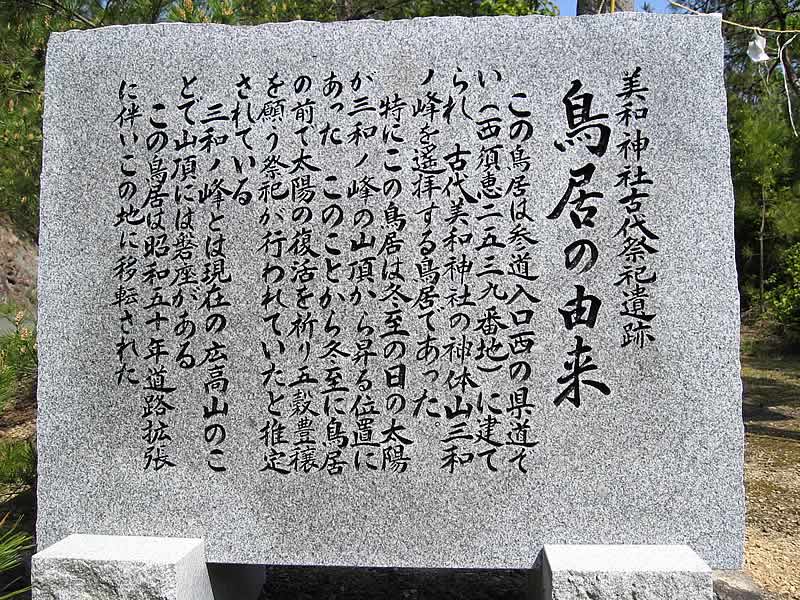 美和神社古代祭祀遺跡
鳥居の由来
この鳥居は参道入口西の県道ぞ
い（西須恵二五三九番地）に建て
られ 古代美和神社の神体山三和
ノ峰を遥拝する鳥居であった
特にこの鳥居は冬至の日の太陽
が三和ノ峰の山頂から昇る位置に
あった このことから冬至に鳥居
の前で太陽の復活を祈り五穀豊穣
を願う祭祀が行われていたと推定
されている
三和ノ峰とは現在の広高山のこ
とで山頂には磐座がある
この鳥居は昭和五十年道路拡張
に伴いこの地に移転された